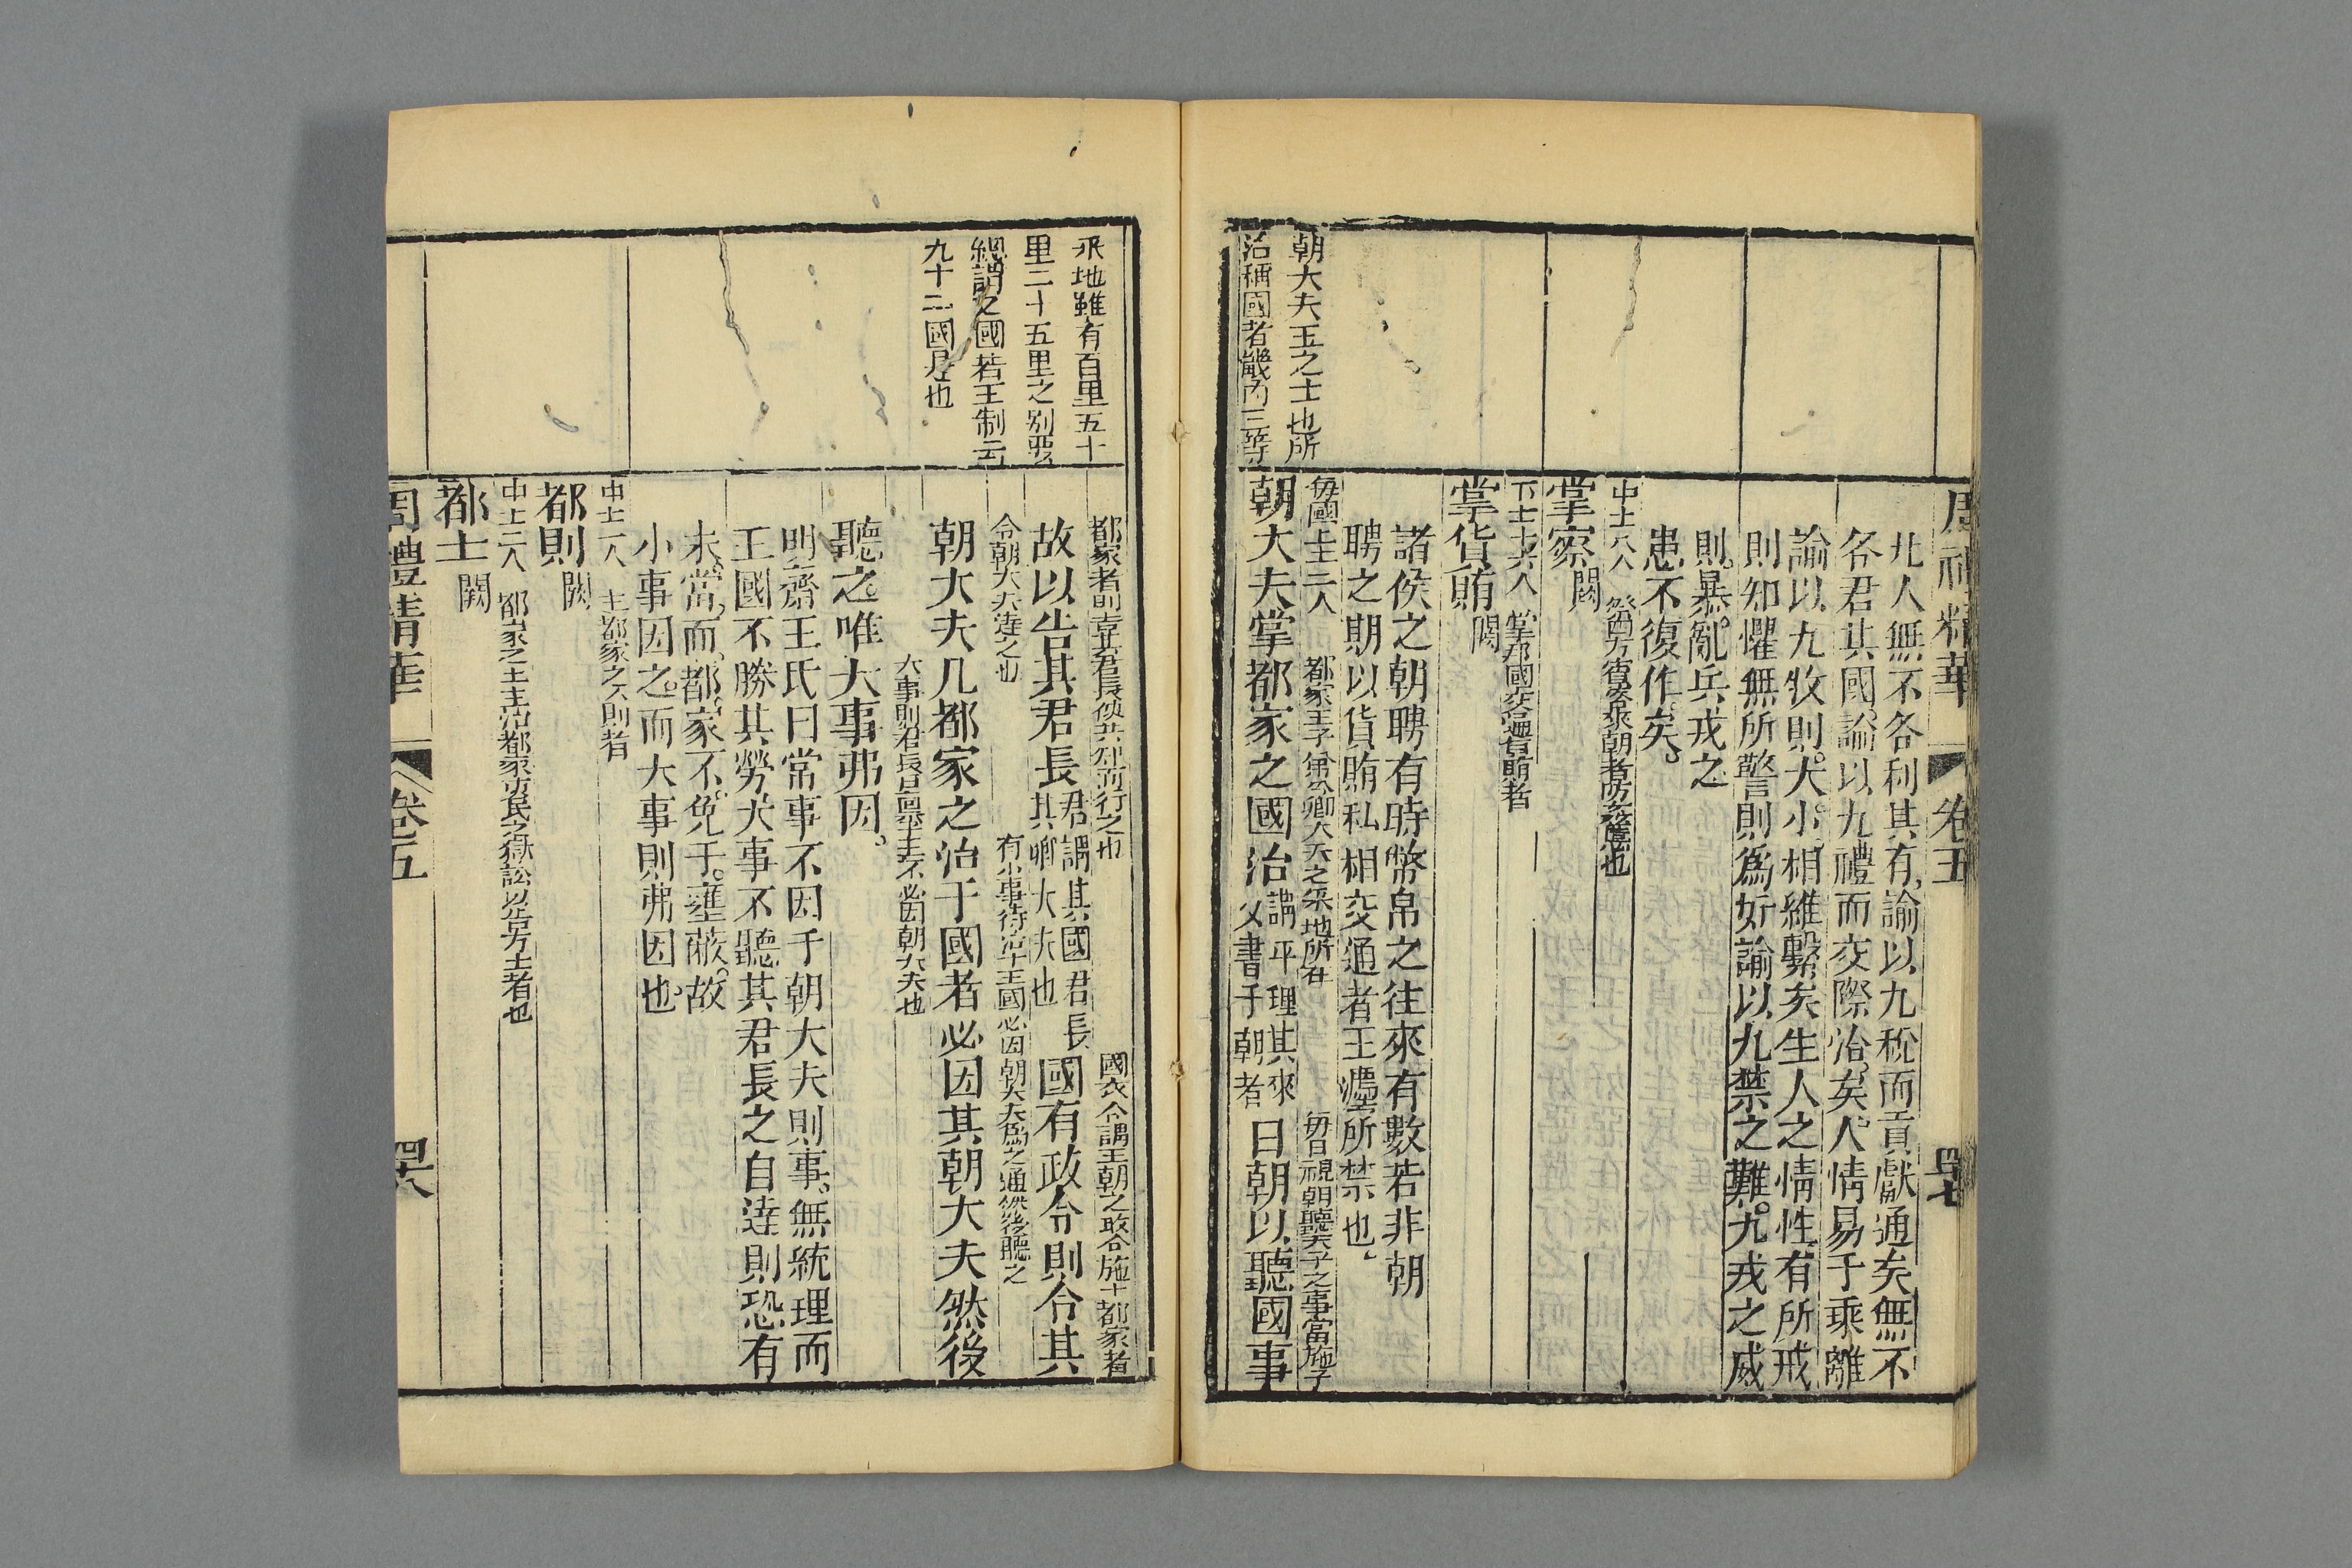 周禮精華 卷五 四七
凡人無不各利其有諭以九稅而貢獻通矣無不
各君其國諭以九禮而交際洽矣人情易于乖離
諭以九牧則大小相維繫矣生人之情性有所戒
則知懼無所警則為奸諭以九禁之難九戎之威
則暴亂兵戎之
患不復作矣
中士八人
掌察闕
下士十六人
掌貨賄闕
諸侯之朝聘有時幣帛之往來有數若非朝
聘之期以貨賄私相交通者王灋所禁也
每國上士二人 都家王子弟公卿大夫之采地所在 每日視朝聽天子之事當施于
朝大夫掌都家之國治 謂平理其來文書于朝者 日朝以聽國事
朝大夫王之士也所
治稱國者畿內三等
采地雖有百里五十
里二十五里之別要
總謂之國若王制云
九十三國是也
都家者則告其君長使共知而行之也 國政令謂王朝之政令施于都家者
故以告其君長 君謂其國君長其卿大夫也 國有政令則令其
令朝大夫達之也 有小事待治于王國必因朝大夫為之通然後聽之
朝大夫凡都家之治于國者必因其朝大夫然後
大事則君長自稟王不必因朝大夫也
聽之唯大事弗因
明齋王氏曰常事不因于朝大夫則事無統理而
王國不勝其勞大事不聽其君長之自達則恐有
未當而都家不免于壅蔽故
小事因之而大事則弗因也
中士一人 主都家之八則者
都則闕
中士二人 都家之士主治都家吏民之獄訟以告方士者也
都士闕
周禮精華 卷五 四八